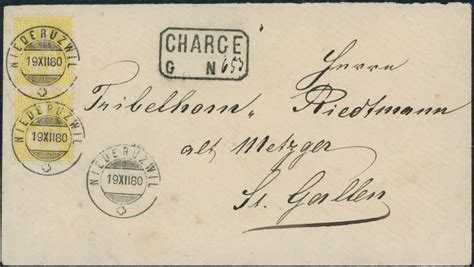 NIEDERUZWIL
19XII80
NIEDERUZWIL
19XII80
NIEDERUZWIL
19XII80
CHARGE
G N 653
Herrn
Tribelhorn" Riedtmann
alt Metzger
St. Gallen